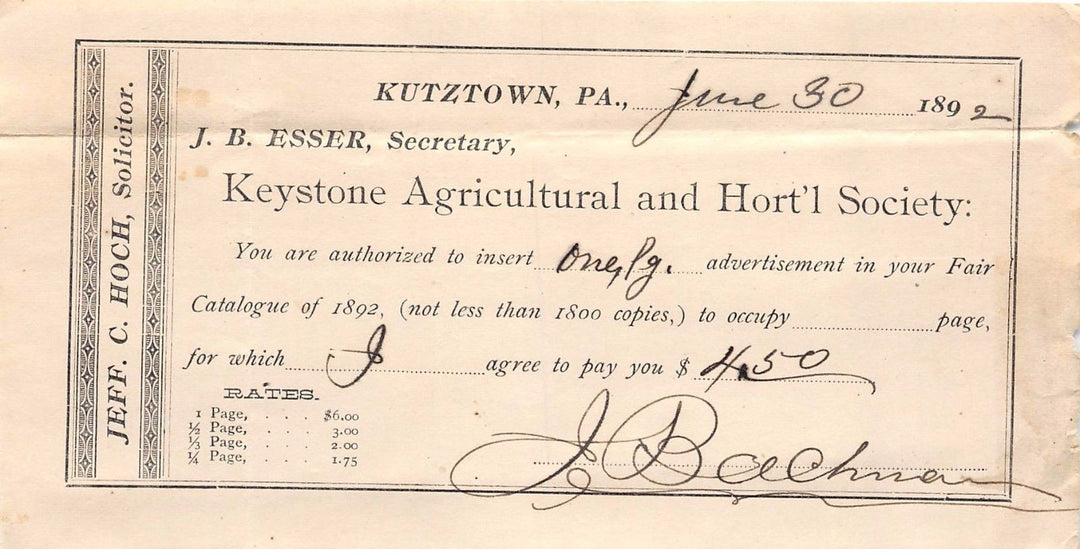 JEFF. C. HOCH, Solicitor.
KUTZTOWN, PA., June 30 1892
J. B. ESSER, Secretary,
Keystone Agricultural and Hort'l Society:
You are authorized to insert One, Pg. advertisement in your Fair
Catalogue of 1892, (not less than 1800 copies,) to occupy page,
for which I agree to pay you $ 4.50
RATES.
1 Page, . . . $6.00
½ Page, . . . 3.00
⅓ Page, . . . 2.00
¼ Page, . . . 1.75
J Bachman